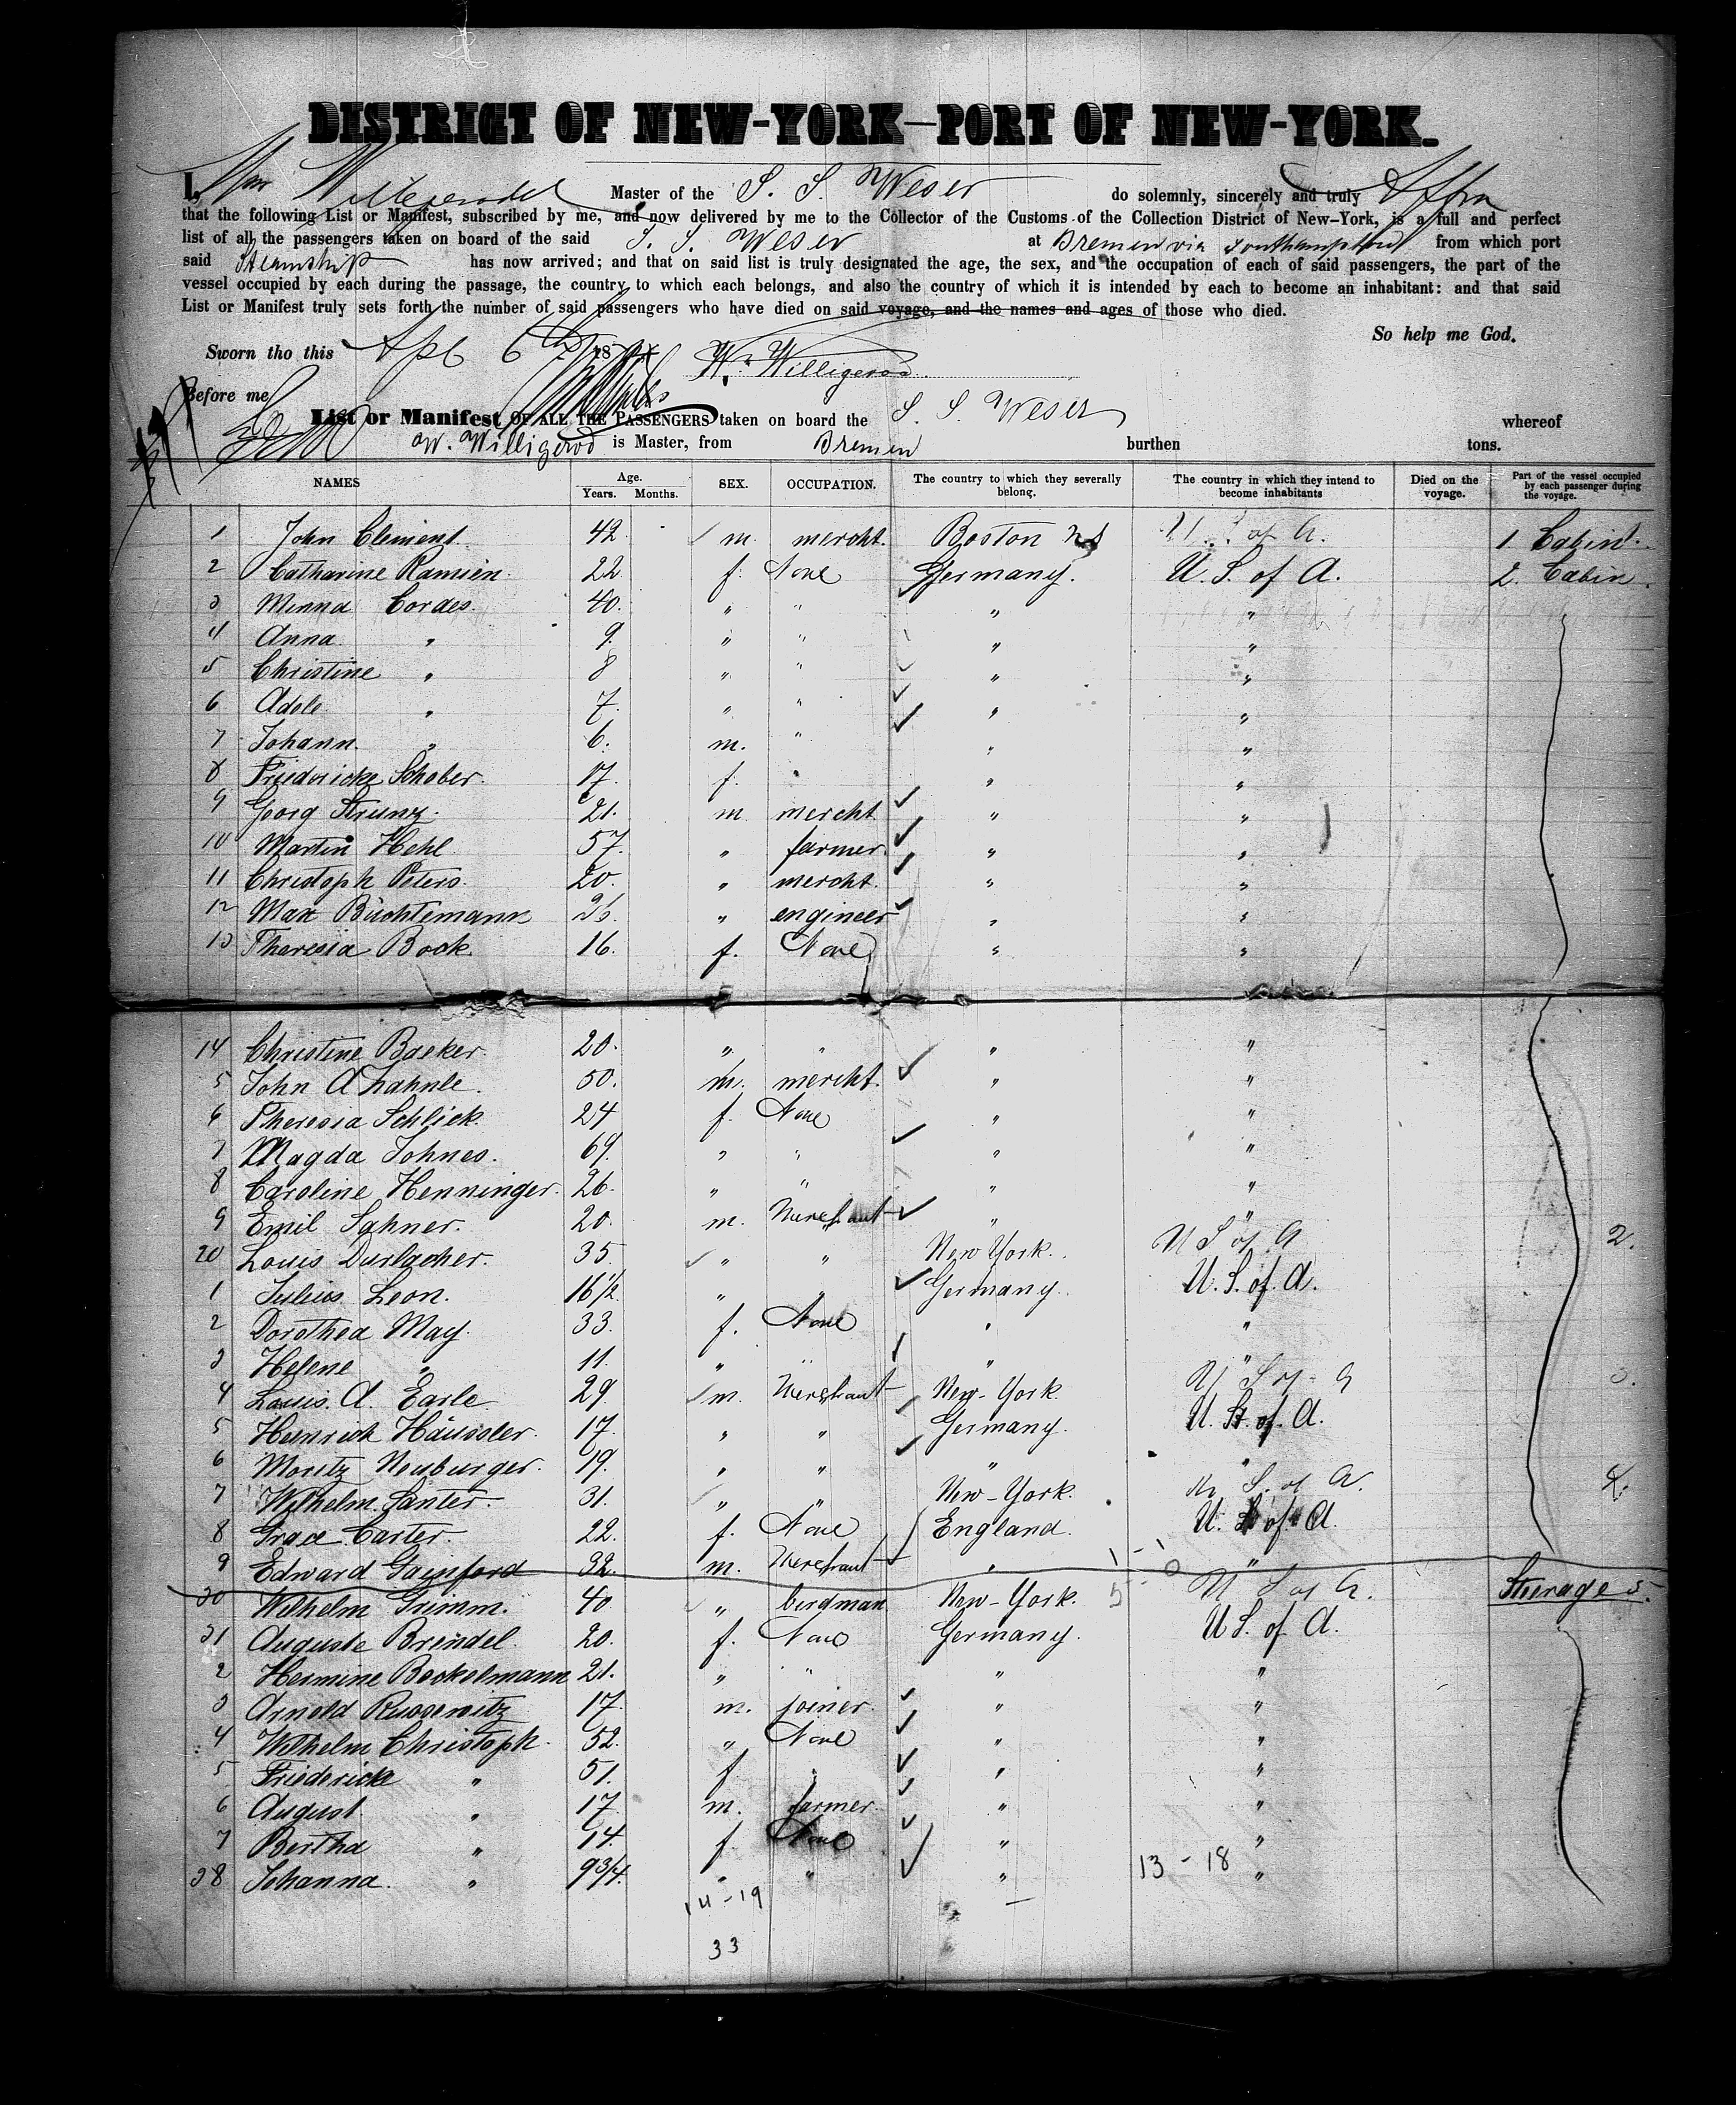 DISTRICT OF NEW-YORK—PORT OF NEW-YORK.
I, Wm Willigerod Master of the S. S. Weser do solemnly, sincerely and truly Affirm
that the following List or Manifest, subscribed by me, and now delivered by me to the Collector of the Customs of the Collection District of New-York, is a full and perfect
list of all the passengers taken on board of the said S. S. Weser at Bremen via Southampton from which port
said Steamship has now arrived; and that on said list is truly designated the age, the sex, and the occupation of each of said passengers, the part of the
vessel occupied by each during the passage, the country to which each belongs, and also the country of which it is intended by each to become an inhabitant: and that said
List or Manifest truly sets forth the number of said passengers who have died on said voyage, and the names and ages of those who died.
So help me God.
Sworn tho this Apl 6th 18 W. Willigerod
Before me
List or Manifest OF ALL THE PASSENGERS taken on board the S. S. Weser whereof
W. Willigerod is Master, from Bremen burthen tons.
NAMES Age. Years. Months. SEX. OCCUPATION. The country to which they severally belong. The country in which they intend to become inhabitants Died on the voyage. Part of the vessel occupied by each passenger during the voyage.
1 John Clement. 42 m. mercht. Boston U.S. of A. 1. Cabin.
2 Catharine Ramien. 22 f. None Germany. U. S. of A. 2. Cabin.
3 Minna Cordes. 40. " " " "
4 Anna " 9. " " " "
5 Christine " 8 " " " "
6 Adele " 7. " " " "
7 Johann. " 6. m. " " "
8 Friedericke Schober. 17. f. " " "
9 Georg Strunz. 21. m mercht " "
10 Martin Hehl 57. " farmer. " "
11 Christoph Peters. 20. " mercht. " "
12 Max Büchtemann 26. " engineer " "
13 Theresia Book. 16. f. None " "
14 Christine Baeker. 20. " " " "
5 John A Zahnle. 50. m. mercht. " "
6 Theresia Schlick. 24 f. None " "
7 Magda Johnes. 69. " " " "
8 Caroline Henninger. 26. " " " "
9 Emil Sahner. 20. m. Merchant " "
20 Louis Durlacher. 35. " " New York. U S of A 2.
1 Julius Leon. 16½. " " Germany. U. S. of A.
2 Dorothea May. 33. f. None " "
3 Helene " 11. " " " "
4 Louis. A. Earle. 29. m. Merchant New-York. U S of A 3.
5 Heinrich Häussler. 17. " " Germany. U. St. of. A.
6 Moritz Neuburger. 19. " " " "
7 Wilhelm Santer. 31. " " New-York. U. S. of A. 4.
8 Grace Carter. 22. f. None England. U. S. of A.
9 Edward Gainford 32. m. Merchant " "
30 Wilhelm Grimm. 40 " birdman New-York. U S of A. Steerage 5.
31 Auguste Brendel. 20. f. None Germany. U S. of A.
2 Hermine Beckelmann 21. " " " "
3 Arnold Russewitz 17. m. joiner. " "
4 Wilhelm Christoph. 52. " None " "
5 Friedericke " 51. f. " " "
6 August " 17. m. farmer. " "
7 Bertha " 14. f. None " "
38 Johanna. " 9 3/4. " " " "
13 - 18
14 - 19
33